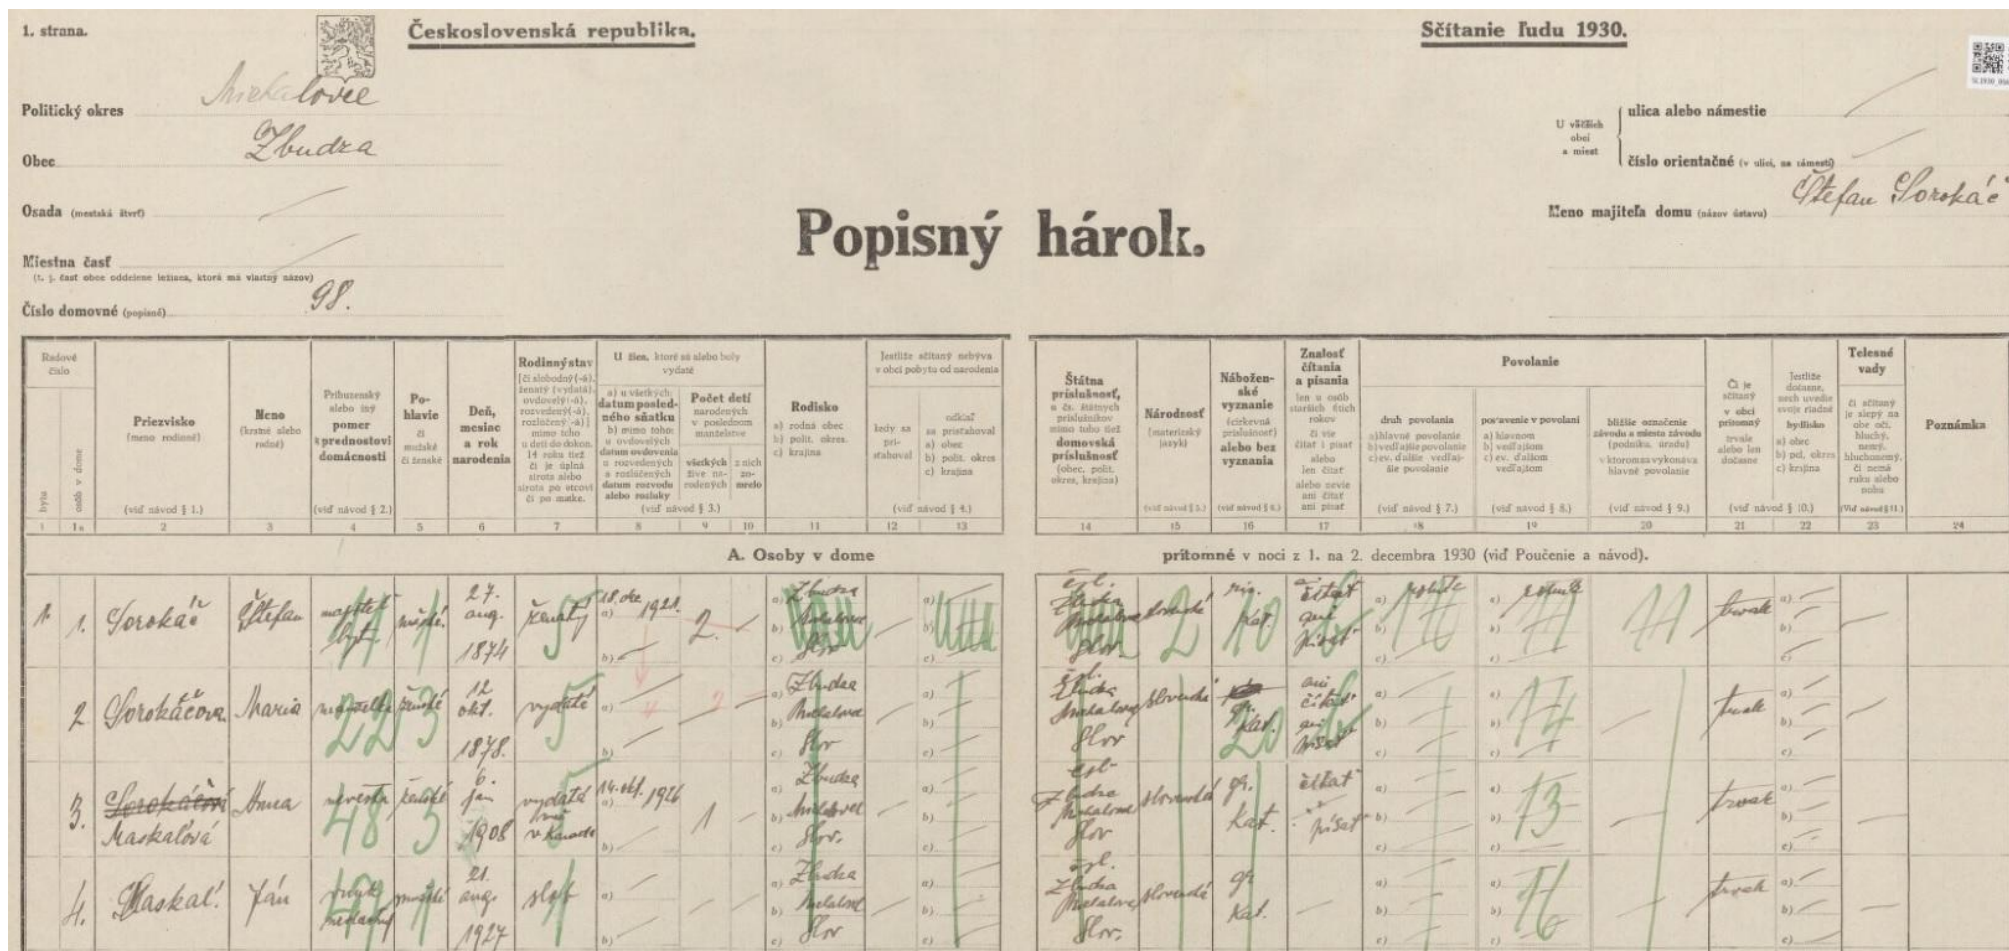 1. strana.
Československá republika.
Sčítanie ľudu 1930.
Politický okres Michalovce
Obec Zbudza
Osada (mestská štvrť)
Miestna časť
(t. j. časť obce oddelene ležiaca, ktorá má vlastný názov)
Číslo domovné (popisné) 98.
Popisný hárok.
U väčších obcí a miest
ulica alebo námestie
číslo orientačné (v ulici, na námestí)
Meno majiteľa domu (názov ústavu) Štefan Sorokáč
Radové číslo
bytu
osôb v dome
Priezvisko
(meno rodinné)
(viď návod § 1.)
Meno
(krstné alebo rodné)
Príbuzenský alebo iný pomer k prednostovi domácnosti
(viď návod § 2.)
Pohlavie
či mužské či ženské
Deň, mesiac a rok narodenia
Rodinný stav
[či slobodný (-á), ženatý (vydatá), ovdovelý (-á), rozvedený (-á), rozlúčený (-á)] mimo toho u detí do dokon. 14 roku tiež či je úplná sirota alebo sirota po otcovi či po matke.
U žien, ktoré sú alebo boly vydaté
a) u všetkých: datum posledného sňatku
b) mimo toho: u ovdovelých datum ovdovenia
u rozvedených a rozlúčených datum rozvodu alebo rozluky
Počet detí
narodených v poslednom manželstve
všetkých žive narodených
z nich zomrelo
(viď návod § 3.)
Rodisko
a) rodná obec
b) polit. okres.
c) krajina
Jestliže sčítaný nebýva v obci pobytu od narodenia
kedy sa prisťahoval
odkiaľ sa prisťahoval
a) obec
b) polit. okres
c) krajina
(viď návod § 4.)
Štátna príslušnosť,
u čs. štátnych príslušníkov mimo toho tiež
domovská príslušnosť
(obec, polit. okres, krajina)
Národnosť
(materinský jazyk)
(viď návod § 5.)
Náboženské vyznanie
(cirkevná príslušnosť)
alebo bez vyznania
(viď návod § 6.)
Znalosť čítania a písania
len u osôb starších 6tich rokov
či vie čítať i písať alebo len čítať alebo nevie ani čítať ani písať
Povolanie
druh povolania
a) hlavné povolanie
b) vedľajšie povolanie
c) ev. ďalšie vedľajšie povolanie
(viď návod § 7.)
postavenie v povolaní
a) hlavnom
b) vedľajšom
c) ev. ďalšom vedľajšom
(viď návod § 8.)
bližšie označenie závodu a miesto závodu
(podniku, úradu)
v ktorom sa vykonáva hlavné povolanie
(viď návod § 9.)
Či je sčítaný v obci prítomný
trvale alebo len dočasne
Jestliže dočasne, nech uvedie svoje riadné bydlisko
a) obec
b) pol. okres
c) krajina
(viď návod § 10.)
Telesné vady
či sčítaný je slepý na obe oči, hluchý, nemý, hluchonemý, či nemá ruku alebo nohu
(Viď návod § 11.)
Poznámka
1 1a 2 3 4 5 6 7 8 9 10 11 12 13 14 15 16 17 18 19 20 21 22 23 24
A. Osoby v dome prítomné v noci z 1. na 2. decembra 1930 (viď Poučenie a návod).
1. 1. Sorokáč Štefan majiteľ bytu mužské 27. aug. 1874 ženatý a) 1921. b) 2. a) Zbudza b) Michalovce c) Slov. a) b) c) čsl. Zbudza Michalovce Slov. slovenská kat. čítať ani písať a) roľník b) c) a) roľník b) c) trvale a) b) c)
2. Sorokáčova Maria manželka ženské 12 okt. 1878. vydatá a) b) a) Zbudza b) Michalovce c) Slov a) b) c) čsl. Zbudza Michalovce Slov slovenská gr. kat. ani čítať ani písať a) b) c) a) b) c) trvale a) b) c)
3. Sorokáčová Maskaľová Anna nevesta ženské 6. jan 1908 vydatá muž v Kanade a) 14. okt. 1926 b) 1 a) Zbudza b) Michalovce c) Slov. a) b) c) čsl. Zbudza Michalovce Slov slovenská gr. Kat. čítať písať a) b) c) a) b) c) trvale a) b) c)
4. Maskaľ Ján vnuk mužské 21. aug. 1927 slob a) b) a) Zbudza b) Michalovce c) Slov a) b) c) čsl. Zbudza Michalovce Slov. slovenská gr. Kat. a) b) c) a) b) c) trvale a) b) c)